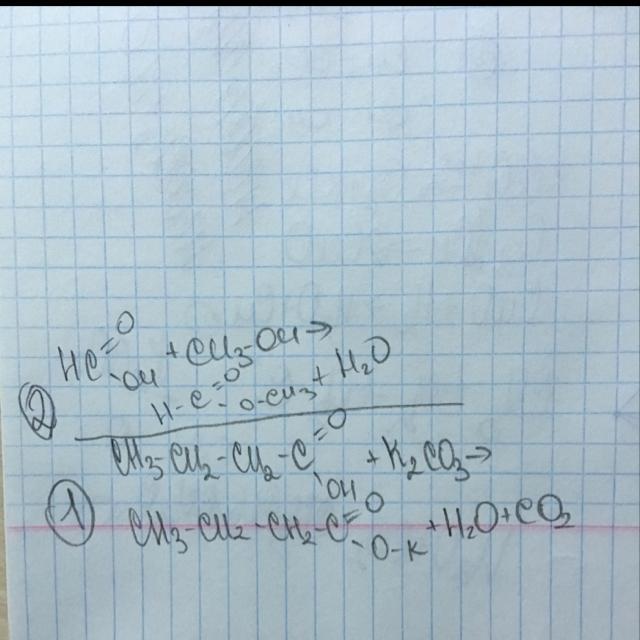 ② HC=O -OH + CH3-OH →
H-C=O -O-CH3 + H2O
① CH3-CH2-CH2-C=O -OH + K2CO3 →
CH3-CH2-CH2-C=O -O-K + H2O + CO2